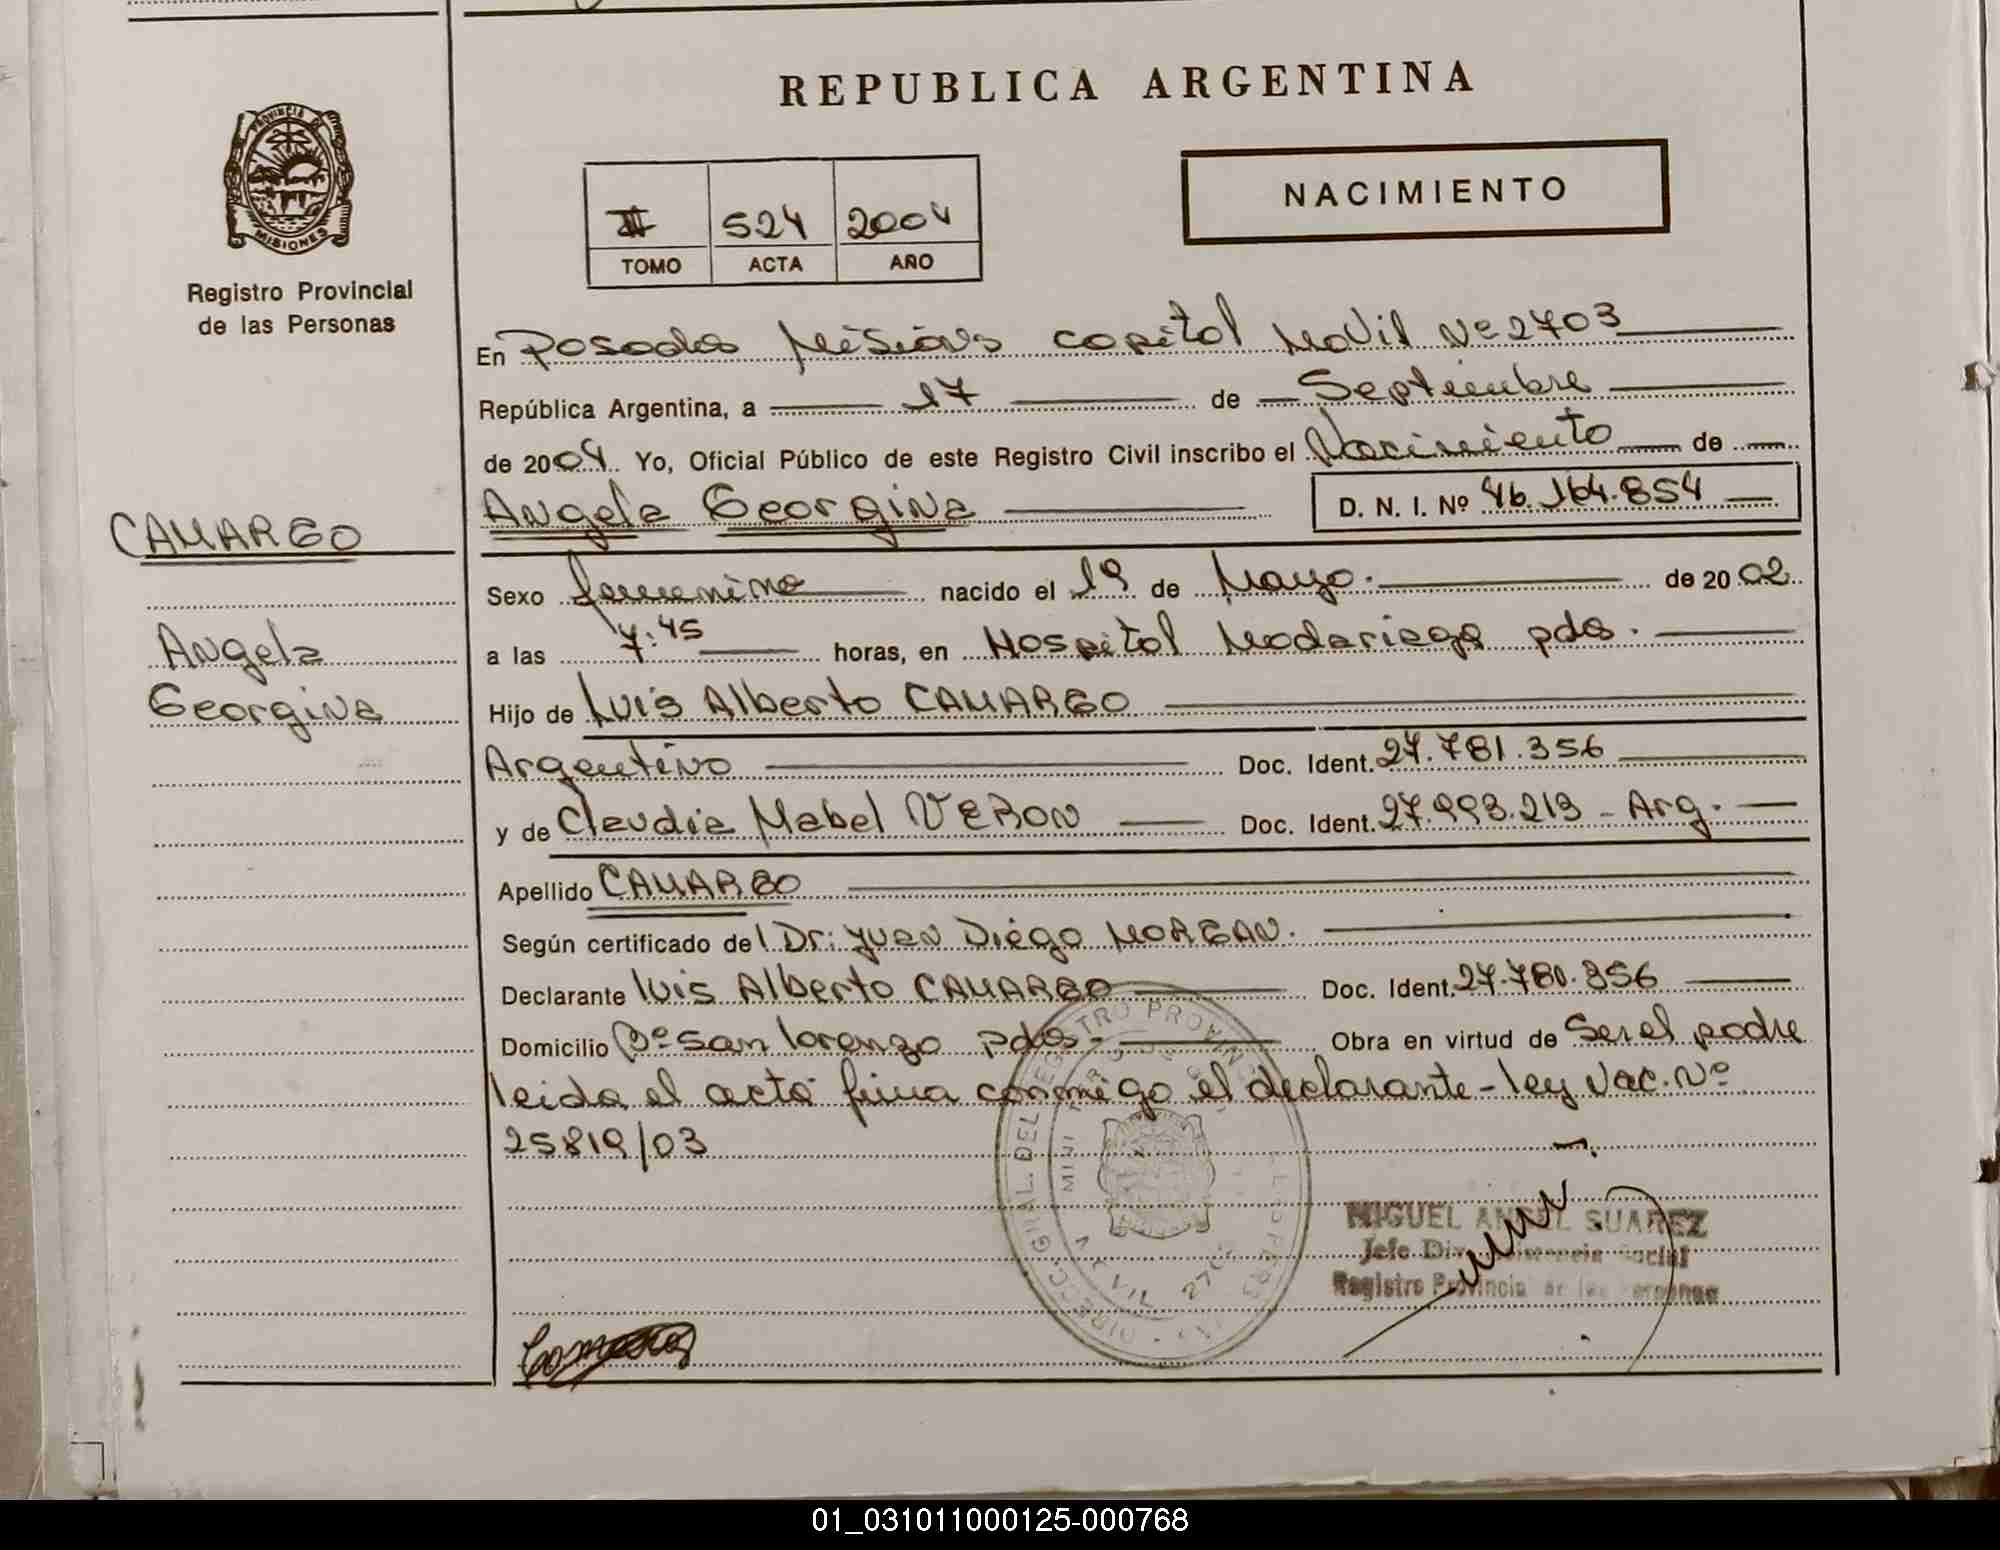 REPUBLICA ARGENTINA
PROVINCIA DE
MISIONES
Registro Provincial
de las Personas
NACIMIENTO
II 524 2004
TOMO ACTA AÑO
En Posadas Misiones capital Movil Nº 2703
República Argentina, a 17 de Septiembre
de 2004 Yo, Oficial Público de este Registro Civil inscribo el Nacimiento de
Angela Georgina D. N. I. Nº 46.164.854
CAMARGO
Angela
Georgina
Sexo femenino nacido el 19 de Mayo. de 2002
a las 7:45 horas, en Hospital Madariaga pdas.
Hijo de Luis Alberto CAMARGO
Argentino Doc. Ident. 27.781.356
y de Claudia Mabel VERON Doc. Ident. 27.993.219 - Arg.
Apellido CAMARGO
Según certificado del Dr: Juan Diego MORGAN.
Declarante Luis Alberto CAMARGO Doc. Ident. 27.780.356
Domicilio Bº San lorenzo pdas- Obra en virtud de Ser el padre
leida el acta firma conmigo el declarante - ley Nac. Nº
25819/03
MIGUEL ANGEL SUAREZ
Jefe Div. Asistencia Social
Registro Provincial de las Personas
01_031011000125-000768